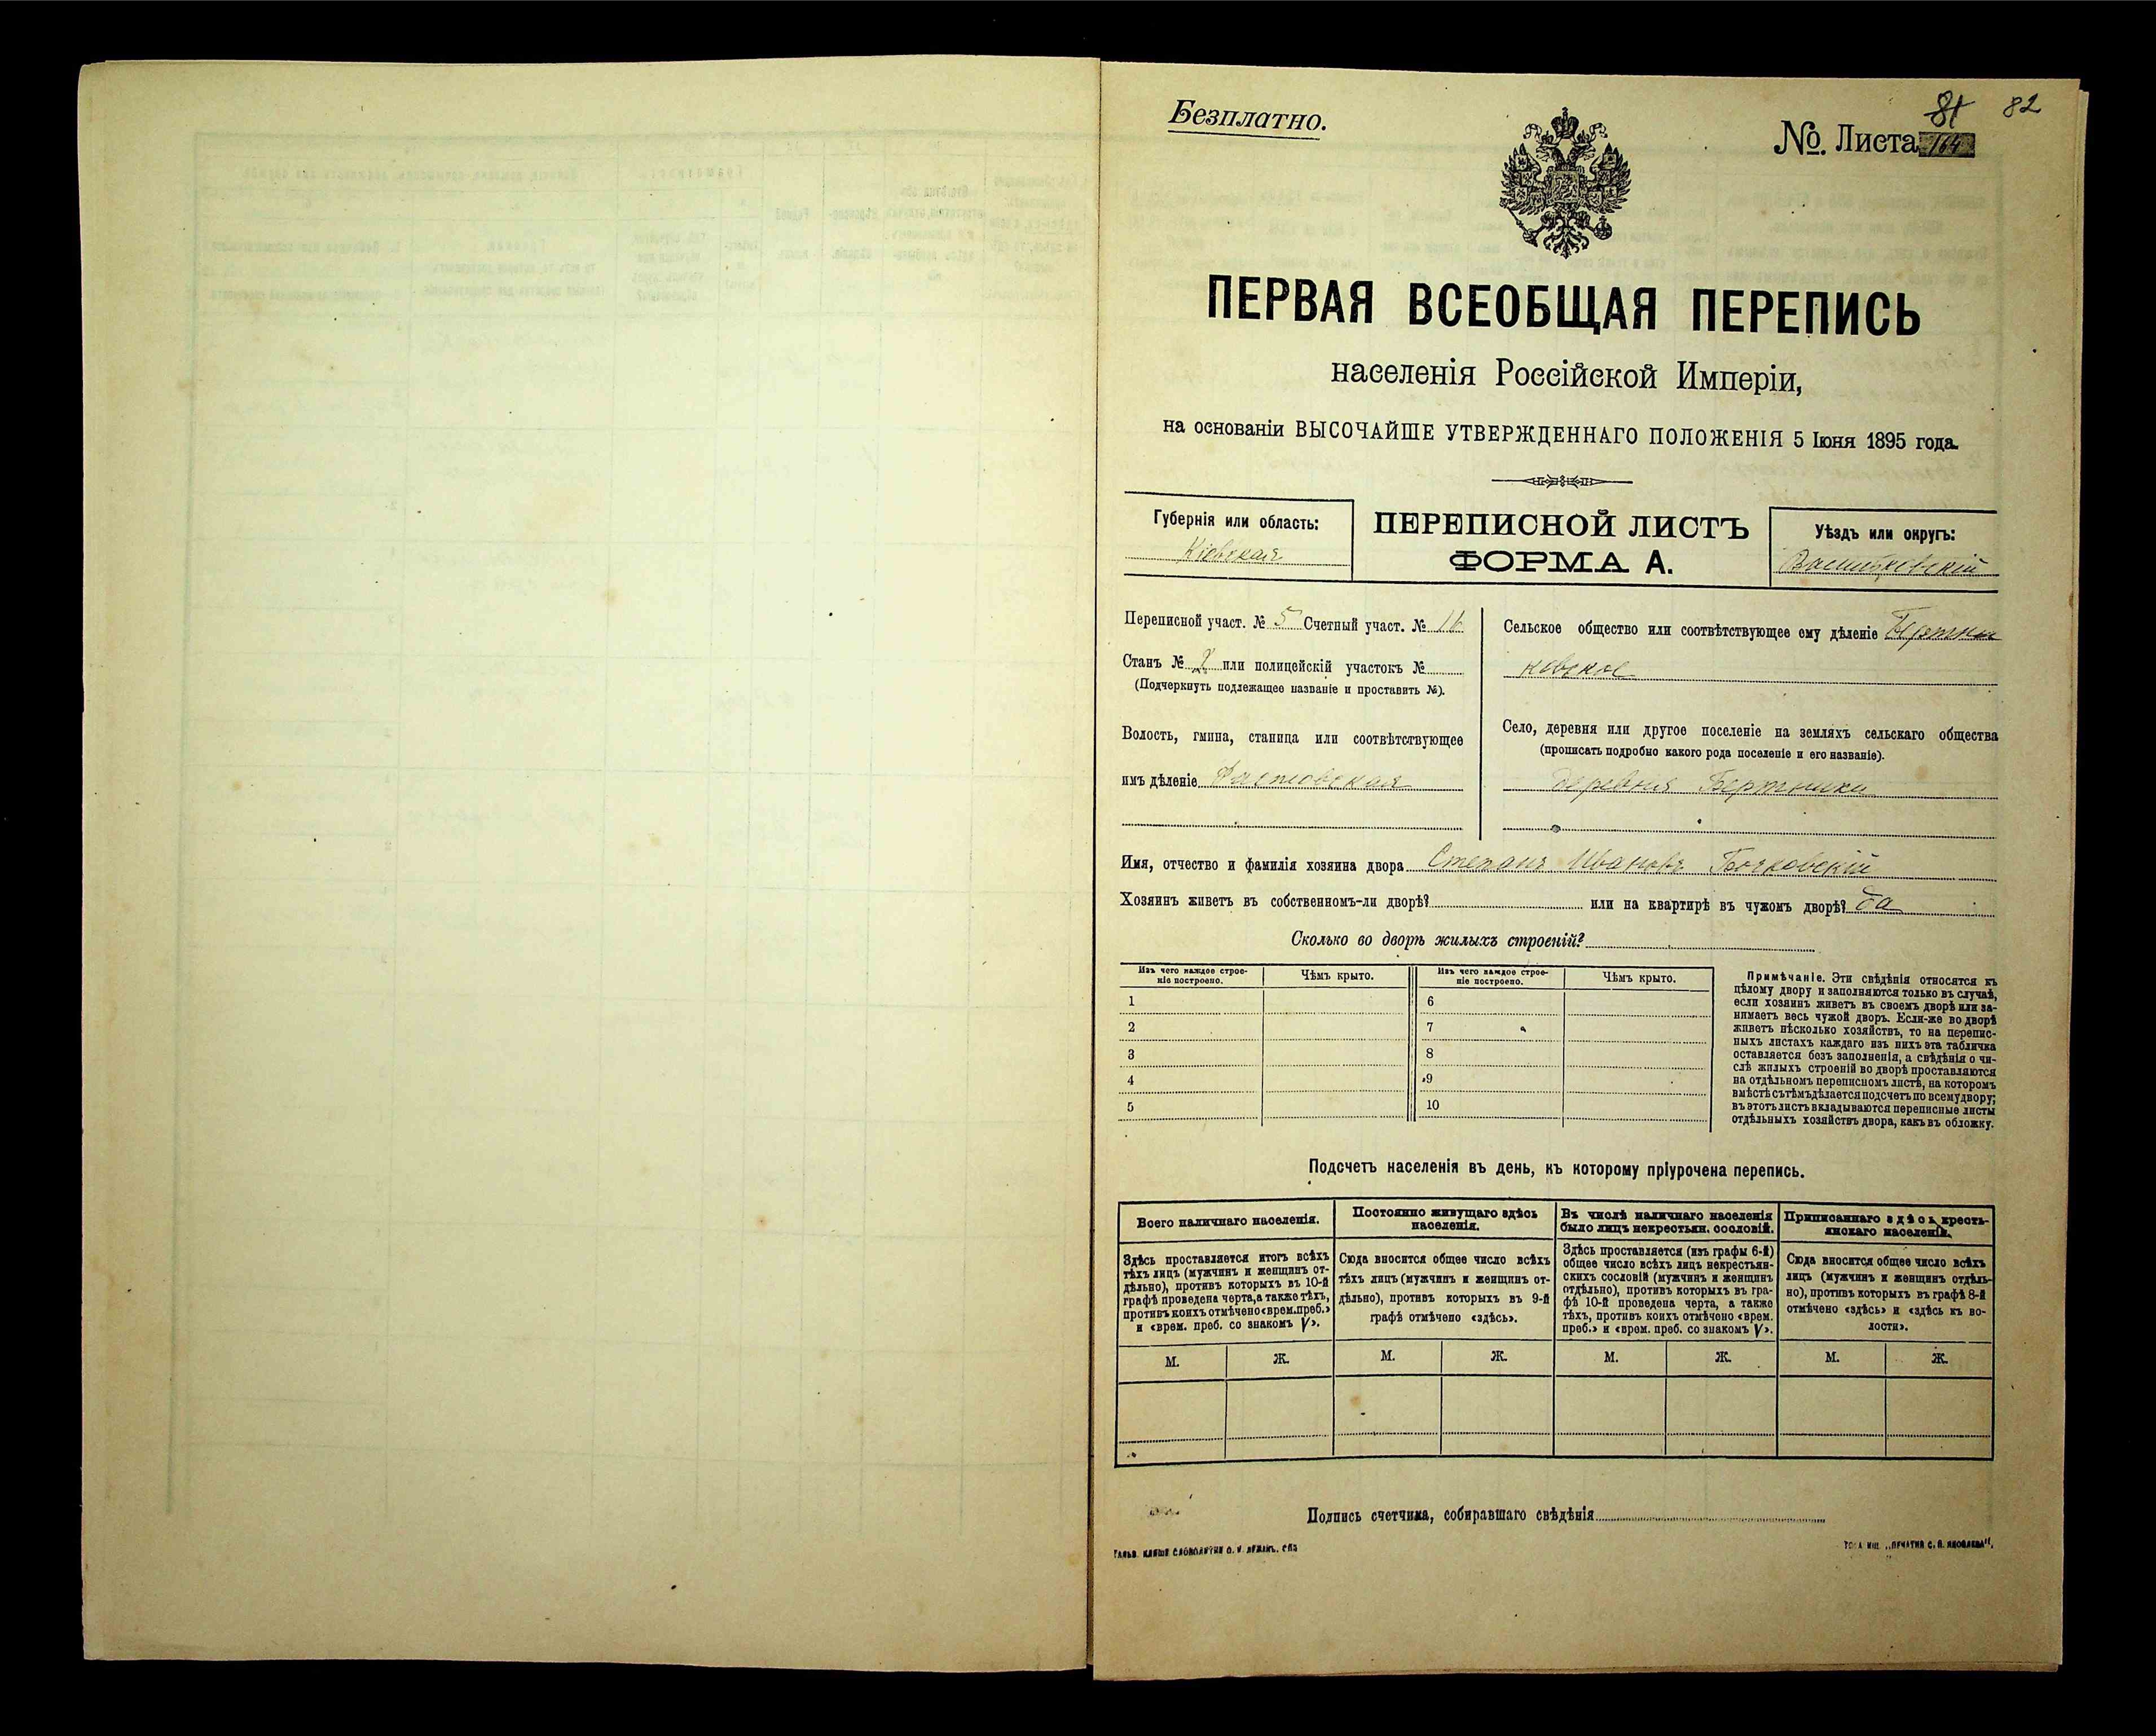 Безплатно.
81 82
№. Листа 164
ПЕРВАЯ ВСЕОБЩАЯ ПЕРЕПИСЬ
населенія Россійской Имперіи,
на основаніи ВЫСОЧАЙШЕ УТВЕРЖДЕННАГО ПОЛОЖЕНІЯ 5 Іюня 1895 года.
Губернія или область:
Кіевская
ПЕРЕПИСНОЙ ЛИСТЪ
ФОРМА А.
Уѣздъ или округъ:
Васильковскій
Переписной участ. № 5 Счетный участ. №
Станъ № или полицейскій участокъ №
(Подчеркнуть подлежащее названіе и проставить №).
Волость, гмина, станица или соотвѣтствующее
имъ дѣленіе Фастовская
Сельское общество или соотвѣтствующее ему дѣленіе
Село, деревня или другое поселеніе на земляхъ сельскаго общества
(прописать подробно какого рода поселеніе и его названіе).
деревня Бертники
Имя, отчество и фамилія хозяина двора Степанъ Ивановъ Бочковскій
Хозяинъ живетъ въ собственномъ-ли дворѣ? или на квартирѣ въ чужомъ дворѣ? да
Сколько во дворѣ жилыхъ строеній?
Изъ чего каждое строе-
ніе построено.
Чѣмъ крыто.
Изъ чего каждое строе-
ніе построено.
Чѣмъ крыто.
1 6
2 7
3 8
4 9
5 10
Примѣчаніе. Эти свѣдѣнія относятся къ
цѣлому двору и заполняются только въ случаѣ,
если хозяинъ живетъ въ своемъ дворѣ или за-
нимаетъ весь чужой дворъ. Если-же во дворѣ
живетъ нѣсколько хозяйствъ, то на перепис-
ныхъ листахъ каждаго изъ нихъ эта табличка
оставляется безъ заполненія, а свѣдѣнія о чи-
слѣ жилыхъ строеній во дворѣ проставляются
на отдѣльномъ переписномъ листѣ, на которомъ
вмѣстѣ съ тѣмъ дѣлается подсчетъ по всему двору;
въ этотъ листъ вкладываются переписные листы
отдѣльныхъ хозяйствъ двора, какъ въ обложку.
Подсчетъ населенія въ день, къ которому пріурочена перепись.
Всего наличнаго населенія.
Здѣсь проставляется итогъ всѣхъ
тѣхъ лицъ (мужчинъ и женщинъ от-
дѣльно), противъ которыхъ въ 10-й
графѣ проведена черта, а также тѣхъ,
противъ коихъ отмѣчено «врем. преб.»
и «врем. преб. со знакомъ V».
Постоянно живущаго здѣсь
населенія.
Сюда вносится общее число всѣхъ
тѣхъ лицъ (мужчинъ и женщинъ от-
дѣльно), противъ которыхъ въ 9-й
графѣ отмѣчено «здѣсь».
Въ числѣ наличнаго населенія
было лицъ некрестьян. сословій.
Здѣсь проставляется (изъ графы 6-й)
общее число всѣхъ лицъ некрестьян-
скихъ сословій (мужчинъ и женщинъ
отдѣльно), противъ которыхъ въ гра-
фѣ 10-й проведена черта, а также
тѣхъ, противъ коихъ отмѣчено «врем.
преб.» и «врем. преб. со знакомъ V».
Приписаннаго здѣсь кресть-
янскаго населенія.
Сюда вносится общее число всѣхъ
лицъ (мужчинъ и женщинъ отдѣль-
но), противъ которыхъ въ графѣ 8-й
отмѣчено «здѣсь» и «здѣсь къ во-
лости».
М. Ж. М. Ж. М. Ж. М. Ж.
Подпись счетчика, собиравшаго свѣдѣнія